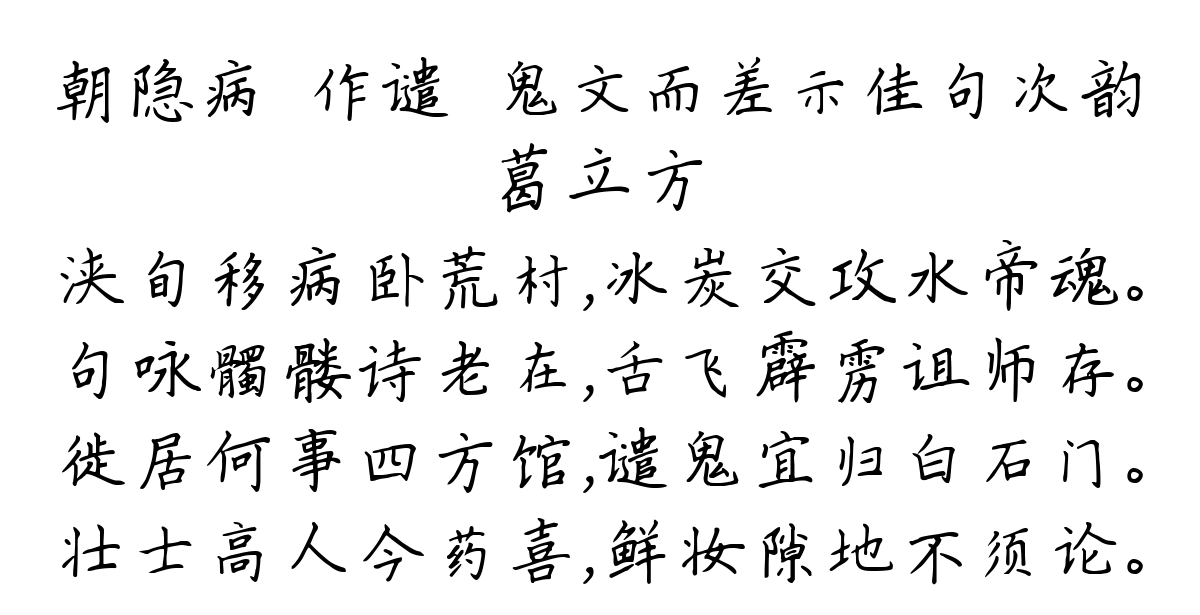 朝隐病 作谴 鬼文而差示佳句次韵
葛立方
浃旬移病卧荒村,冰炭交攻水帝魂。
句咏髑髅诗老在,舌飞霹雳诅师存。
徙居何事四方馆,谴鬼宜归白石门。
壮士高人今药喜,鲜妆隙地不须论。